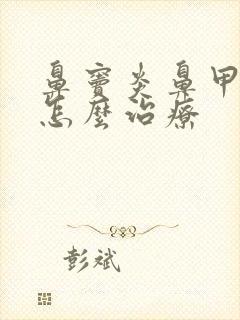 鼻窦炎鼻甲
怎麼治療
彭斌